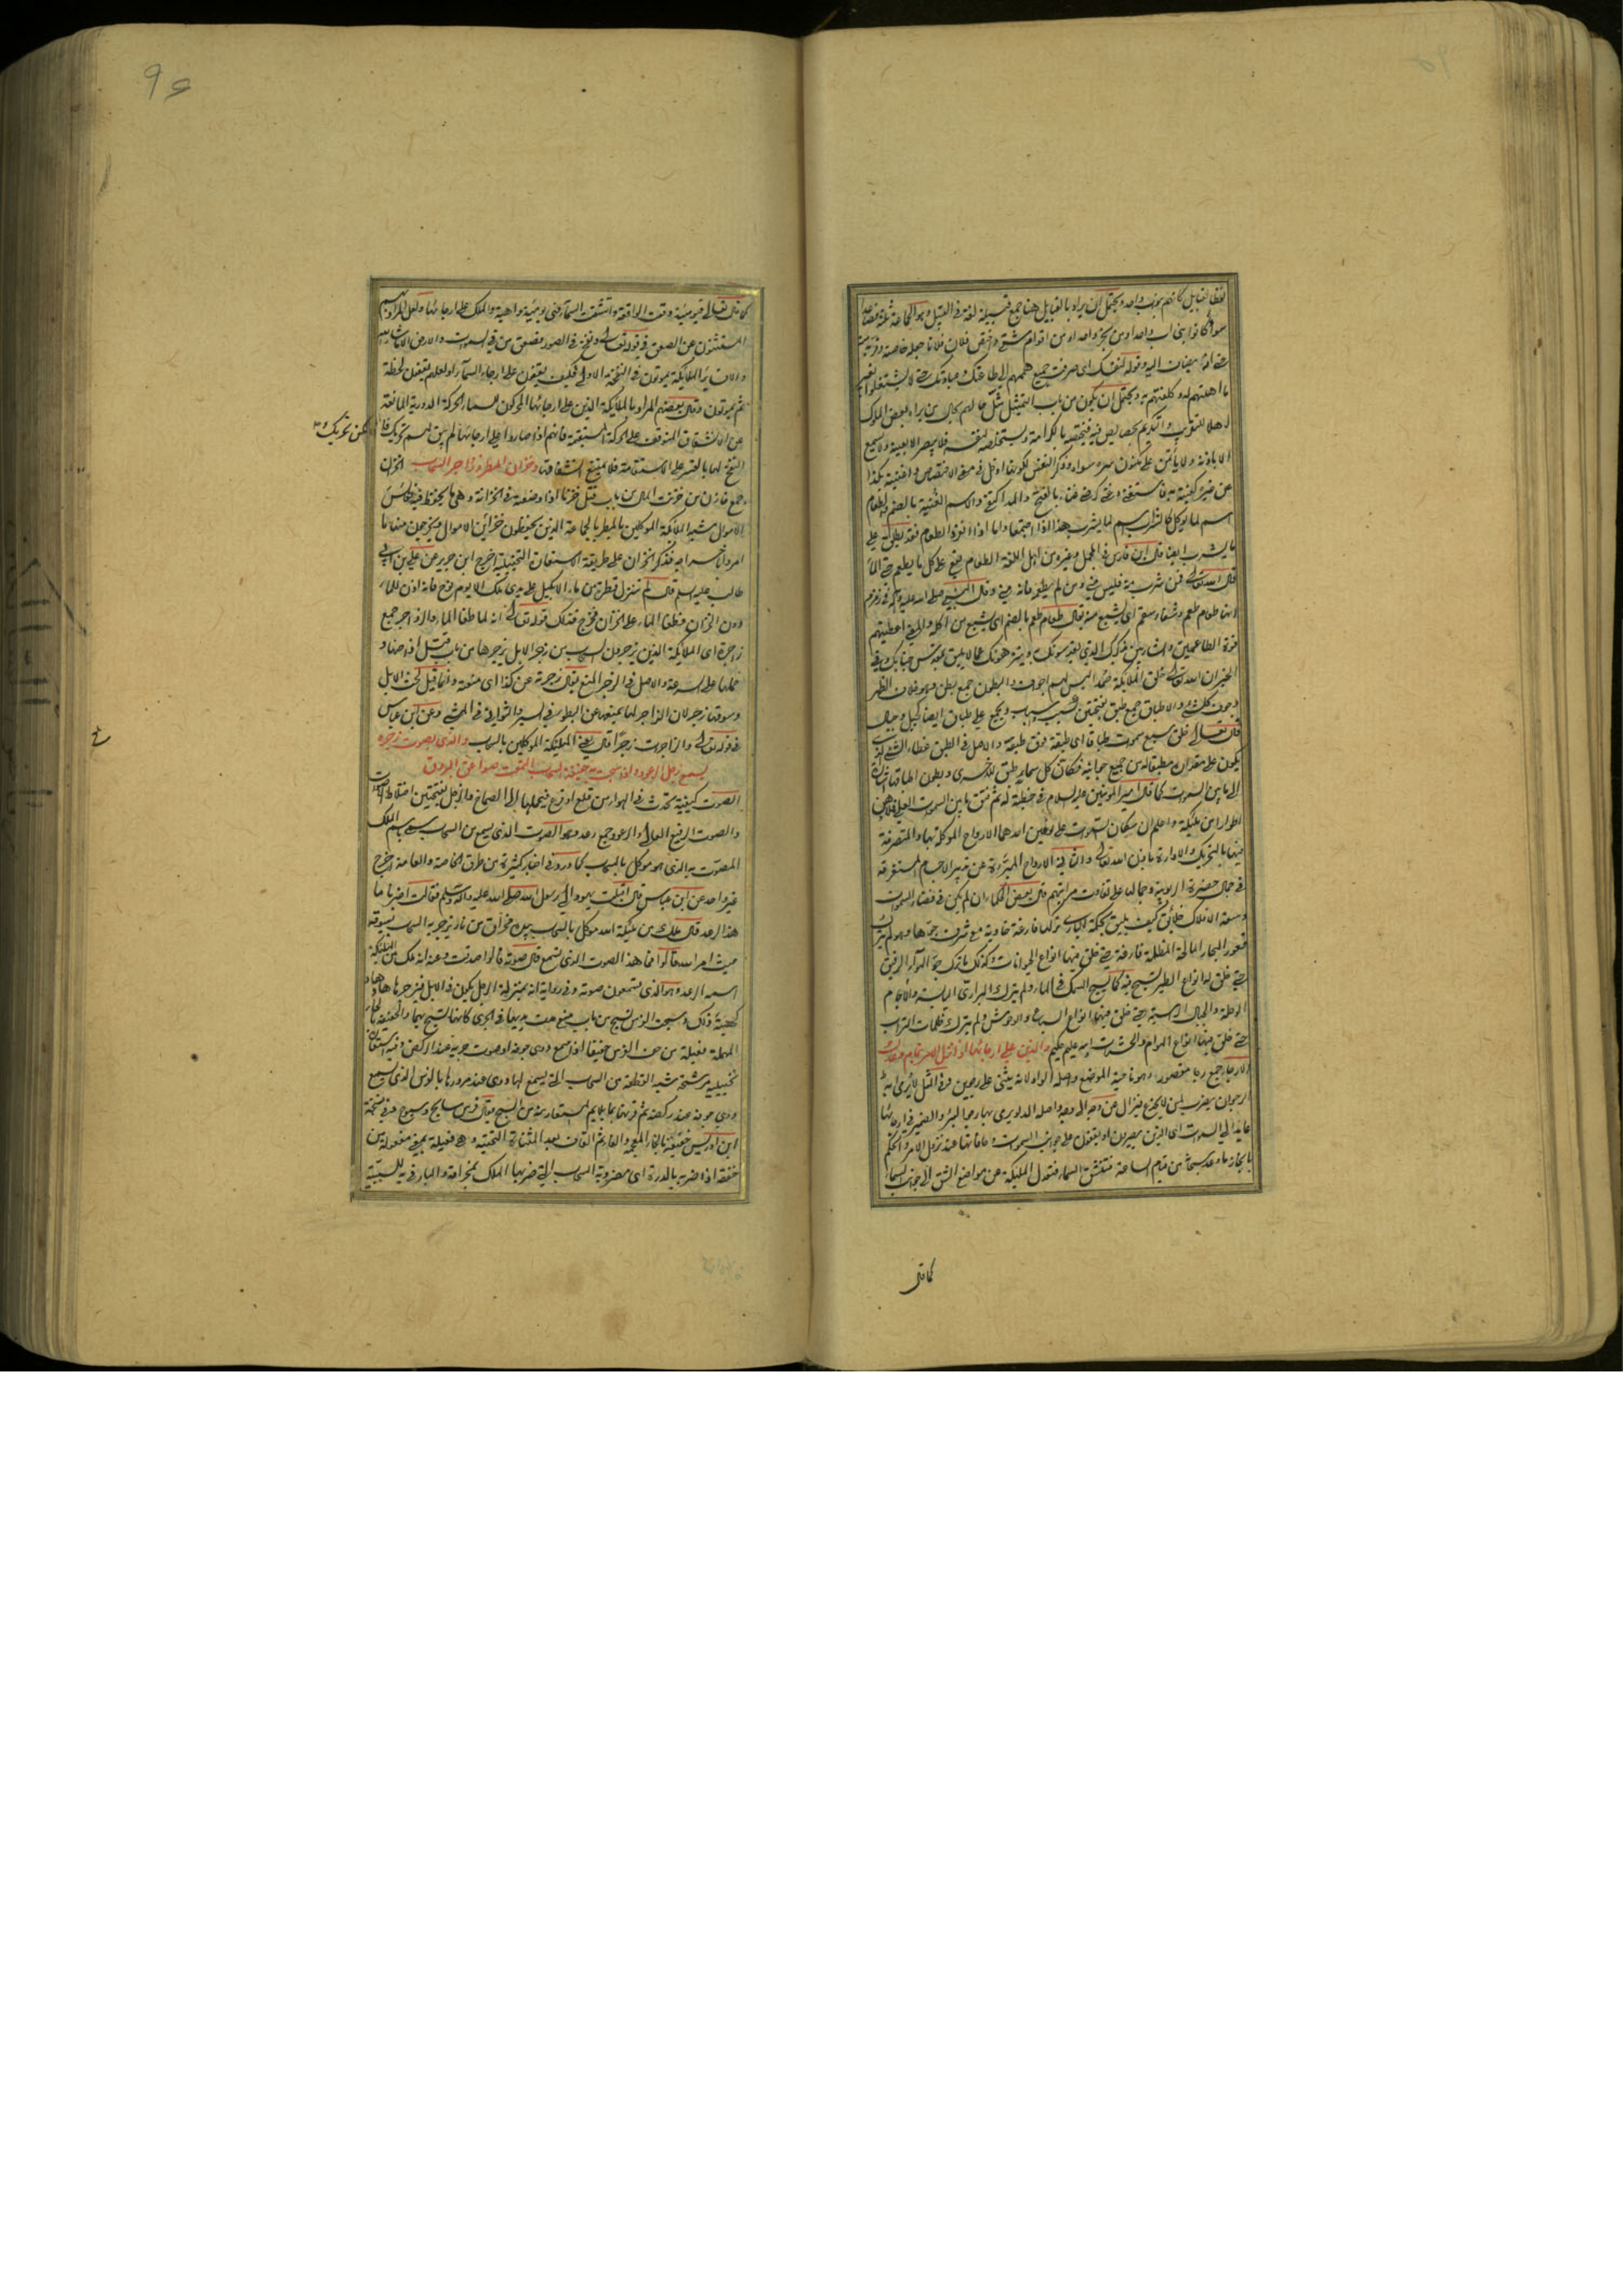 لفظ القبايل كانهم بنو اب واحد ويحتمل ان يراد بالقبايل هنا جمع قبيلة لغة في القبيل وهو الجماعة ثلثة فصاعدا
سواء كانوا بني اب واحد او من نجر واحد او من اقوام شتى واختص فلان فلانا جعله خاصة
حتى انه يضاف اليه وقوله لنفسك اى صرفت جميع هممهم الى طاعتك وعبادتك حتى لا يشتغلوا بغير
ما اهلتهم له وكلفتهم به ويحتمل ان يكون من باب التمثيل مثل حالهم بحال من يراه بعض الملوك
اهلا للتقريب والتكريم لخصايص فيه فيختصه بالكرامة ويستخلصه لنفسه فلا يبصر الا بعينه ولا يسمع
الا باذنه ولا ياتمن على مكنون سره سواه وذكر النفس
عن غيرك كغنيته به فاستغنى
اسم لما يوكل كالشراب اسم لما يشرب هذا اذا اجتمعا واما اذا انفرد الطعام فقد يطلق على
ما يشرب ايضا قال ابن فارس في المجمل وغيره من اهل اللغة الطعام يقع على كل ما يطعم حتى الماء
قال الله تعالى فمن شرب منه فليس مني ومن لم يطعمه فانه مني وقال النبي صلى الله عليه وآله في زمزم
انها طعام طعم وشفاء سقم اى يشبع منه يقال طعام طعم بالضم اى يشبع من اكله والمعنى اعطيتهم
قوة الطاعمين والشاربين بذكرك الذي يقدسونك وينزهونك عما لا يليق بقدس جنابك وفي
الخبر ان الله تعالى خلق الملائكة صمدا ليس لهم اجواف والبطون جمع بطن وهو خلاف الظهر
وجوف كل شيء والاطباق جمع طبق بفتحتين كسبب واسباب ويجمع على طباق ايضا كجبل وجبال
قال تعالى خلق سبع سموات طباقا اى طبقة فوق طبقة والاصل في الطبق غطاء الشيء الذي
يكون على مقداره مطبقا له من جميع جوانبه فكان كل سماء طبق للاخرى وبطون اطباقها اشارة
الى ما بين السموات كما قال امير المؤمنين عليه السلام في خطبة له ثم فتق ما بين السموات العلى فملأهن
اطوارا من ملئكته واعلم ان سكان السموات على قسمين احدهما الارواح الموكلة بها والمتصرفة
فيها بالتحريك والادارة باذن الله تعالى والثانية الارواح المبرأة عن تدبير الاجسام المستغرقة
في جمال حضرة الربوبية وجلالها على تفاوت مراتبهم قال بعض الحكماء ان لم يكن في فضاء السموات
وسعة الافلاك خلائق كيف يليق بحكمة الباري تركها فارغة خاوية مع شرف جوهرها وهو لم يترك
قعور البحار المالحة المظلمة فارغة حتى خلق فيها انواع الحيوانات وكذلك ما ترك جو الهواء الرقيق
حتى خلق له انواع الطير تسبح فيه كما يسبح السمك في الماء ولم يترك البراري اليابسة والاجام
الوحلة والجبال الراسية حتى خلق فيها انواع السباع والوحوش ولم يترك ظلمات التراب
حتى خلق فيها انواع الهوام والحشرات انه عليم حكيم والذين على ارجائها اذا نزل الامر بتمام وعدك
الارجاء جمع رجا مقصورا وهو ناحية الموضع واصله الواو لانه يثنى على رجوين وفي المثل لا يرمى به
الرجوان يضرب لمن لا يخدع فيزال عن وجه الى وجه واصله الدلو يرمى بها رجوا البئر والضمير في ارجائها
عائد الى السموات اى الذين يصيرون او يقفون على جوانب السموات وحافاتها عند نزول الامر والحكم
بانجاز ما وعد سبحانه من قيام الساعة فتنشق السماء فتعدل الملئكة عن مواضع الشق الى جوانب السماء
كما قال
كما قال تعالى فيومئذ وقعت الواقعة وانشقت السماء فهي يومئذ واهية والملك على ارجائها ولعل المراد بهم
المستثنون عن الصعق في قوله تعالى ونفخ في الصور فصعق من في السموات ومن في الارض الا من شاء الله
والا فسائر الملائكة يموتون في النفخة الاولى فكيف يقفون على ارجاء السماء او لعلهم يقفون لحظة
ثم يموتون وقال بعضهم المراد بالملائكة الذين على ارجائها المحركون للسماء الحركة الدورية المانعة
عن الانشقاق المتوقف على الحركة المستقيمة فانهم اذا صاروا على ارجائها لم يبق لهم تحريك
لها بالقسر على الاستقامة فلا يمتنع انشقاقها وخزان المطر وزواجر السحاب الخزان
جمع خازن من خزنت المال من باب قتل خزنا اذا وضعته في الخزانة وهي ما يحفظ فيه نفائس
الاموال شبه الملائكة الموكلين بالمطر بالجماعة الذين يحفظون خزائن الاموال ويخرجون منها ما
امروا باخراجه فذكر الخزان على طريقة الاستعارة التخييلية اخرج ابن جرير عن علي بن ابي
طالب عليه السلم قال لم تنزل قطرة من ماء الا بكيل على يدي ملك الا يوم نوح فانه اذن للماء
دون الخزان فطغى الماء على الخزان فخرج فذلك قوله تعالى انا لما طغا الماء والزواجر جمع
زاجرة اى الملائكة الذين يزجرون السحاب من زجر الابل يزجرها من باب قتل اذا حثها و
حملها على السرعة والاصل في الزجر المنع يقال زجرته عن كذا اى منعته وانما قيل لحث الابل
وسوقها زجر لان الزاجر لها يمنعها عن البطؤ في السير والتواني في المشي وعن ابن عباس
في قوله تعالى والزاجرات زجرا قال يعني الملئكة الموكلين بالسحاب والذي بصوت زجره
يسمع زجل الرعود واذا سبحت به حفيفة السحاب التمعت صواعق البروق
الصوت كيفية تحدث في الهواء من قلع او قرع فيحملها الى الصماخ والزجل بفتحتين اختلاط الاصوات
والصوت الرفيع العالي والرعود جمع رعد وهو الصوت الذي يسمع من السحاب سمي باسم الملك
المصوت به الذي هو موكل بالسحاب كما ورد في اخبار كثيرة من طرق الخاصة والعامة اخرج
غير واحد عن ابن عباس قال اقبلت يهود الى رسول الله صلى الله عليه وآله وسلم فقالت اخبرنا ما
هذا الرعد قال ملك من ملئكة الله موكل بالسحاب بيده مخراق من نار يزجر به السحاب يسوقه
حيث امر الله قالوا فما هذا الصوت الذي نسمع قال صوته قالوا صدقت وعنه انه ملك من الملئكة
اسمه الرعد وهو الذي تسمعون صوته وفي رواية انه بمنزلة الرجل يكون في الابل فيزجرها
كهيئة ذلك وسبحت الفرس تسبح من باب منع مدت يديها في الجري كانها تسبح بهما والحفيفة بالحاء
المهملة فعيلة من حف الفرس حفيفا اذا سمع دوي جوفه او صوت جريه عند الركض وفيه استعارة
تخييلية مرشحة شبه القطعة من السحاب التي يسمع لها دوي عند مرورها بالفرس الذي يسمع
دوي جوفه عند ركضه ثم قرنها بما يلايم المستعار منه من السبح يقال فرس سابح وسبوح وفي نسخة
ابن ادريس خفيقة بالخاء المعجمة والفاء ثم القاف بعد المثناة التحتية وهي فعيلة بمعنى مفعولة من
خفقه اذا ضربه بالدرة اى مضروبة السحاب التي ضربها الملك بمخراقه والباء في به للسببية